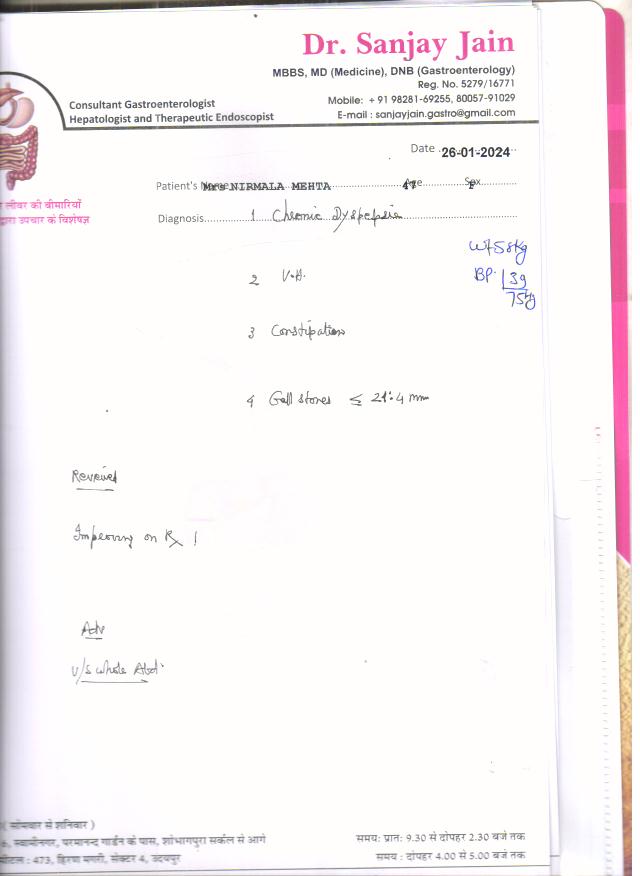 Dr. Sanjay Jain
MBBS, MD (Medicine), DNB (Gastroenterology)
Reg. No. 5279/16771
Mobile: +91 98281-69255, 80057-91029
E-mail : sanjayjain.gastro@gmail.com
Consultant Gastroenterologist
Hepatologist and Therapeutic Endoscopist
लीवर की बीमारियों
द्वारा उपचार के विशेषज्ञ
Date 26-01-2024
Patient's Name Mrs NIRMALA MEHTA Age 47 Sex F
Diagnosis 1 Chronic Dyspepsia
Wt 58kg
BP 139
75
2
3 Constipation
4 Gall stones ≤ 21.4 mm
Reviewed
Improving on Rx
Adv
U/S whole Abd.
( सोमवार से शनिवार )
6, स्वामीनगर, परमानन्द गार्डन के पास, शोभागपुरा सर्कल से आगे
: 473, हिरण मगरी, सेक्टर 4, उदयपुर
समय: प्रात: 9.30 से दोपहर 2.30 बजे तक
समय : दोपहर 4.00 से 5.00 बजे तक